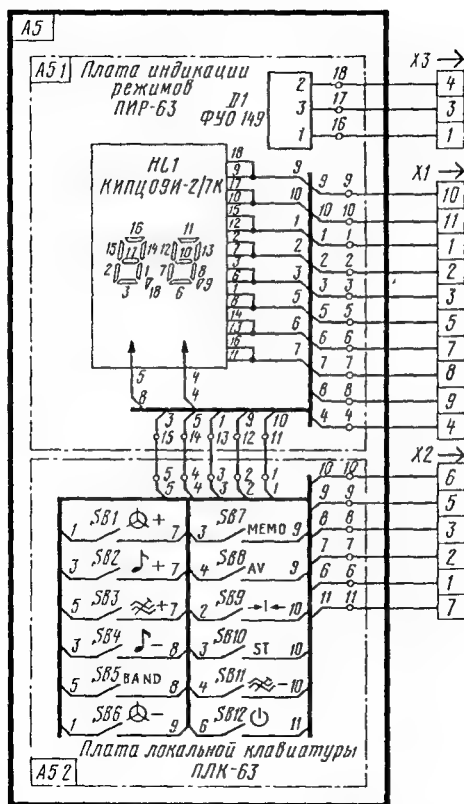 А5
А5 1
Плата индикации
режимов
ПИР-63
D1
ФУО 149
2 18
3 17
1 16
X3
4
3
1
HL1
КИПЦ09И-2/7К
16 11
15 17 14 12 10 13
2 1 7 8
3 18 6 9
18
9
17
10
15
12
16
11
9
10
1
2
3
5
6
7
9 9
10 10
1 1
2 2
3 3
5 5
6 6
7 7
8 8
4 4
X1
10
11
1
2
3
5
7
8
9
4
5 4
8 4
3 5 1 9 10
15 14 13 12 11
5 4 3 2 1
5 4 3 2 1
X2
10 10 6
9 9 5
8 8 3
7 7 2
6 6 1
11 11 7
1 SB1 + 7
3 SB2 + 7
5 SB3 + 7
3 SB4 − 8
5 SB5 BAND 8
1 SB6 − 9
3 SB7 MEMO 9
4 SB8 AV 9
2 SB9 10
3 SB10 ST 10
4 SB11 − 10
6 SB12 11
Плата локальной клавиатуры
ПЛК-63
А5 2